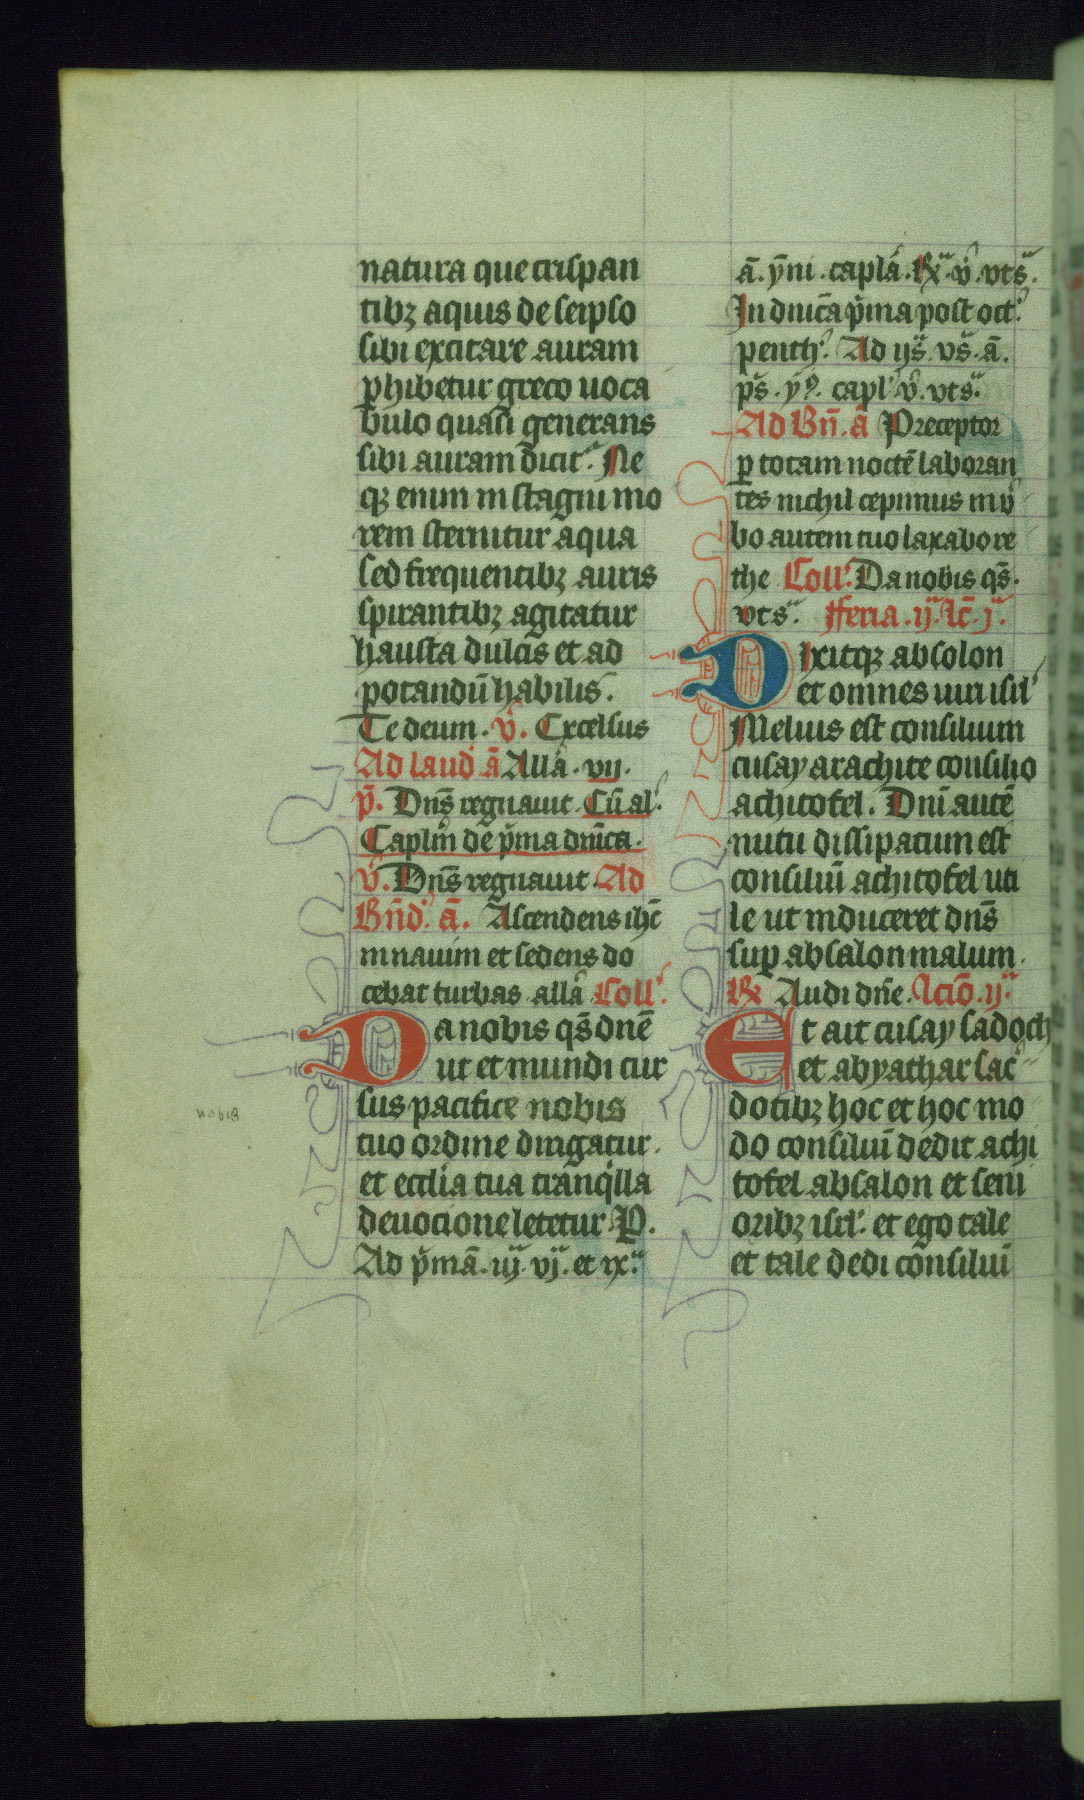 natura que crispan
tibꝫ aquis de seipso
sibi excitare auram
phibetur greco uoca
bulo quasi generans
sibi auram dicitᷣ. Ne
qꝫ enim in stagni mo
rem sternitur aqua
sed frequentibꝫ auris
spirantibꝫ agitatur
hausta dulcis et ad
potandū habilis.
Te deum. v̾. Excelsus
Ad laud̾ ā Allā. vij.
p̄. Dn̄s regnauit. Cū al̾.
Caplm̄ de p̾ma dn̄ica.
v̾. Dn̄s regnauit. Ad
Bn̄d̾. ā. Ascendens ihc̄
in nauim et sedens do
cebat turbas allā Coll̾.
Da nobis qs̄ dn̄e
ut et mundi cur
sus pacifice nobis
nobis
tuo ordine dirigatur.
et ecclīa tua tranq̾lla
deuocione letetur. P.
Ad p̾mā. iij. vj. et ix.
ā. ȳni. caplā. Rx. v̾. vts̄.
In dnīca p̾ma post oct̾.
penth̾. Ad ijs̄ vs̄. ā.
ps̄. yꝰ. capl̾ v̾. vts̄.
Ad Bn̄. ā Preceptor
ꝑ totam noctē laboran
tes nichil cepimus in v̾
bo autem tuo laxabo re
the Coll̾. Da nobis qs̄.
vts̄. Feria. ij. lc̄. j.
Dixitqꝫ absolon
et omnes uiri isrl̾
Melius est consilium
cusay arachite consilio
achitofel. Dnī autē
nutu dissipatum est
consiliū achitofel uti
le ut induceret dn̄s
sup absalon malum.
Rx Audi dn̄e. lctō. ij.
Et ait cusay sadoch
et abyathar sac̾
dotibꝫ hoc et hoc mo
do consiliū dedit achi
tofel absalon et seni
oribꝫ isrl̾. et ego tale
et tale dedi cōnsiliū